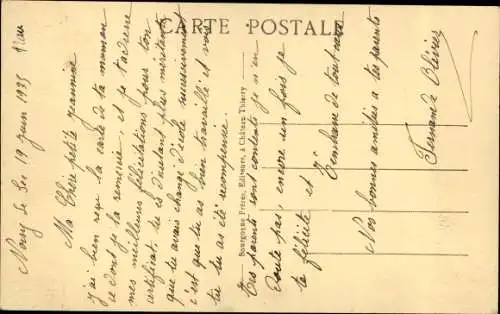 CARTE POSTALE
Noisy le Sec 19 Juin 1935
Ma Chère petite Jeannine
j'ai bien reçu la carte de ta maman
ce dont je la remercie, et je t'adresse
mes meilleures félicitations pour ton
certificat, tu as d'autant plus méritante
que tu avais changé d'école successivement
c'est que tu as bien travaillé et vois
tu tu as été récompensé.
Tes parents sont contents je n'en
doute pas, encore une fois je
te félicite et t'embrasse de tout cœur
Nos bonnes amitiés a tes parents
Fernand Olivier
Bourgogne Frères, Editeurs, à Château-Thierry